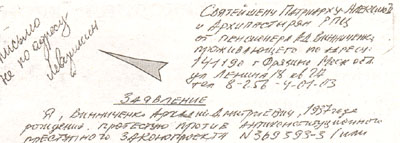 письмо
не по адресу
Левушкин
Святейшему Патриарху Алексию II
и Архипастырям РПЦ
от пенсионера А.Д. Винниченко,
проживающего по адресу:
141190 г Фрязино Моск обл.
ул Ленина 18 кв 24
тел 8-256-4-01-03
ЗАЯВЛЕНИЕ
Я, Винниченко Аркадий Дмитриевич, 1937 года
рождения, протестую против антиконституционного
преступного законопроекта N369593-3 (или